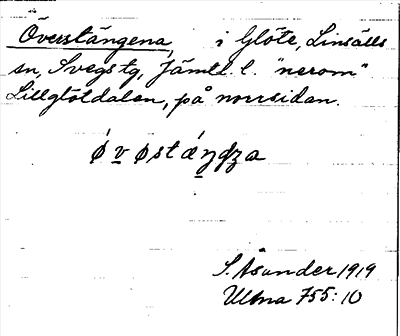 Överstängena, i Glöte, Linsälls
sn, Svegs tg, Jämtl. l. "nerom"
Lillglötdalen, på norrsidan.
ǿ v ø s t ǽ ŋ dz a
S. Åsander 1919
Ulma 755:10